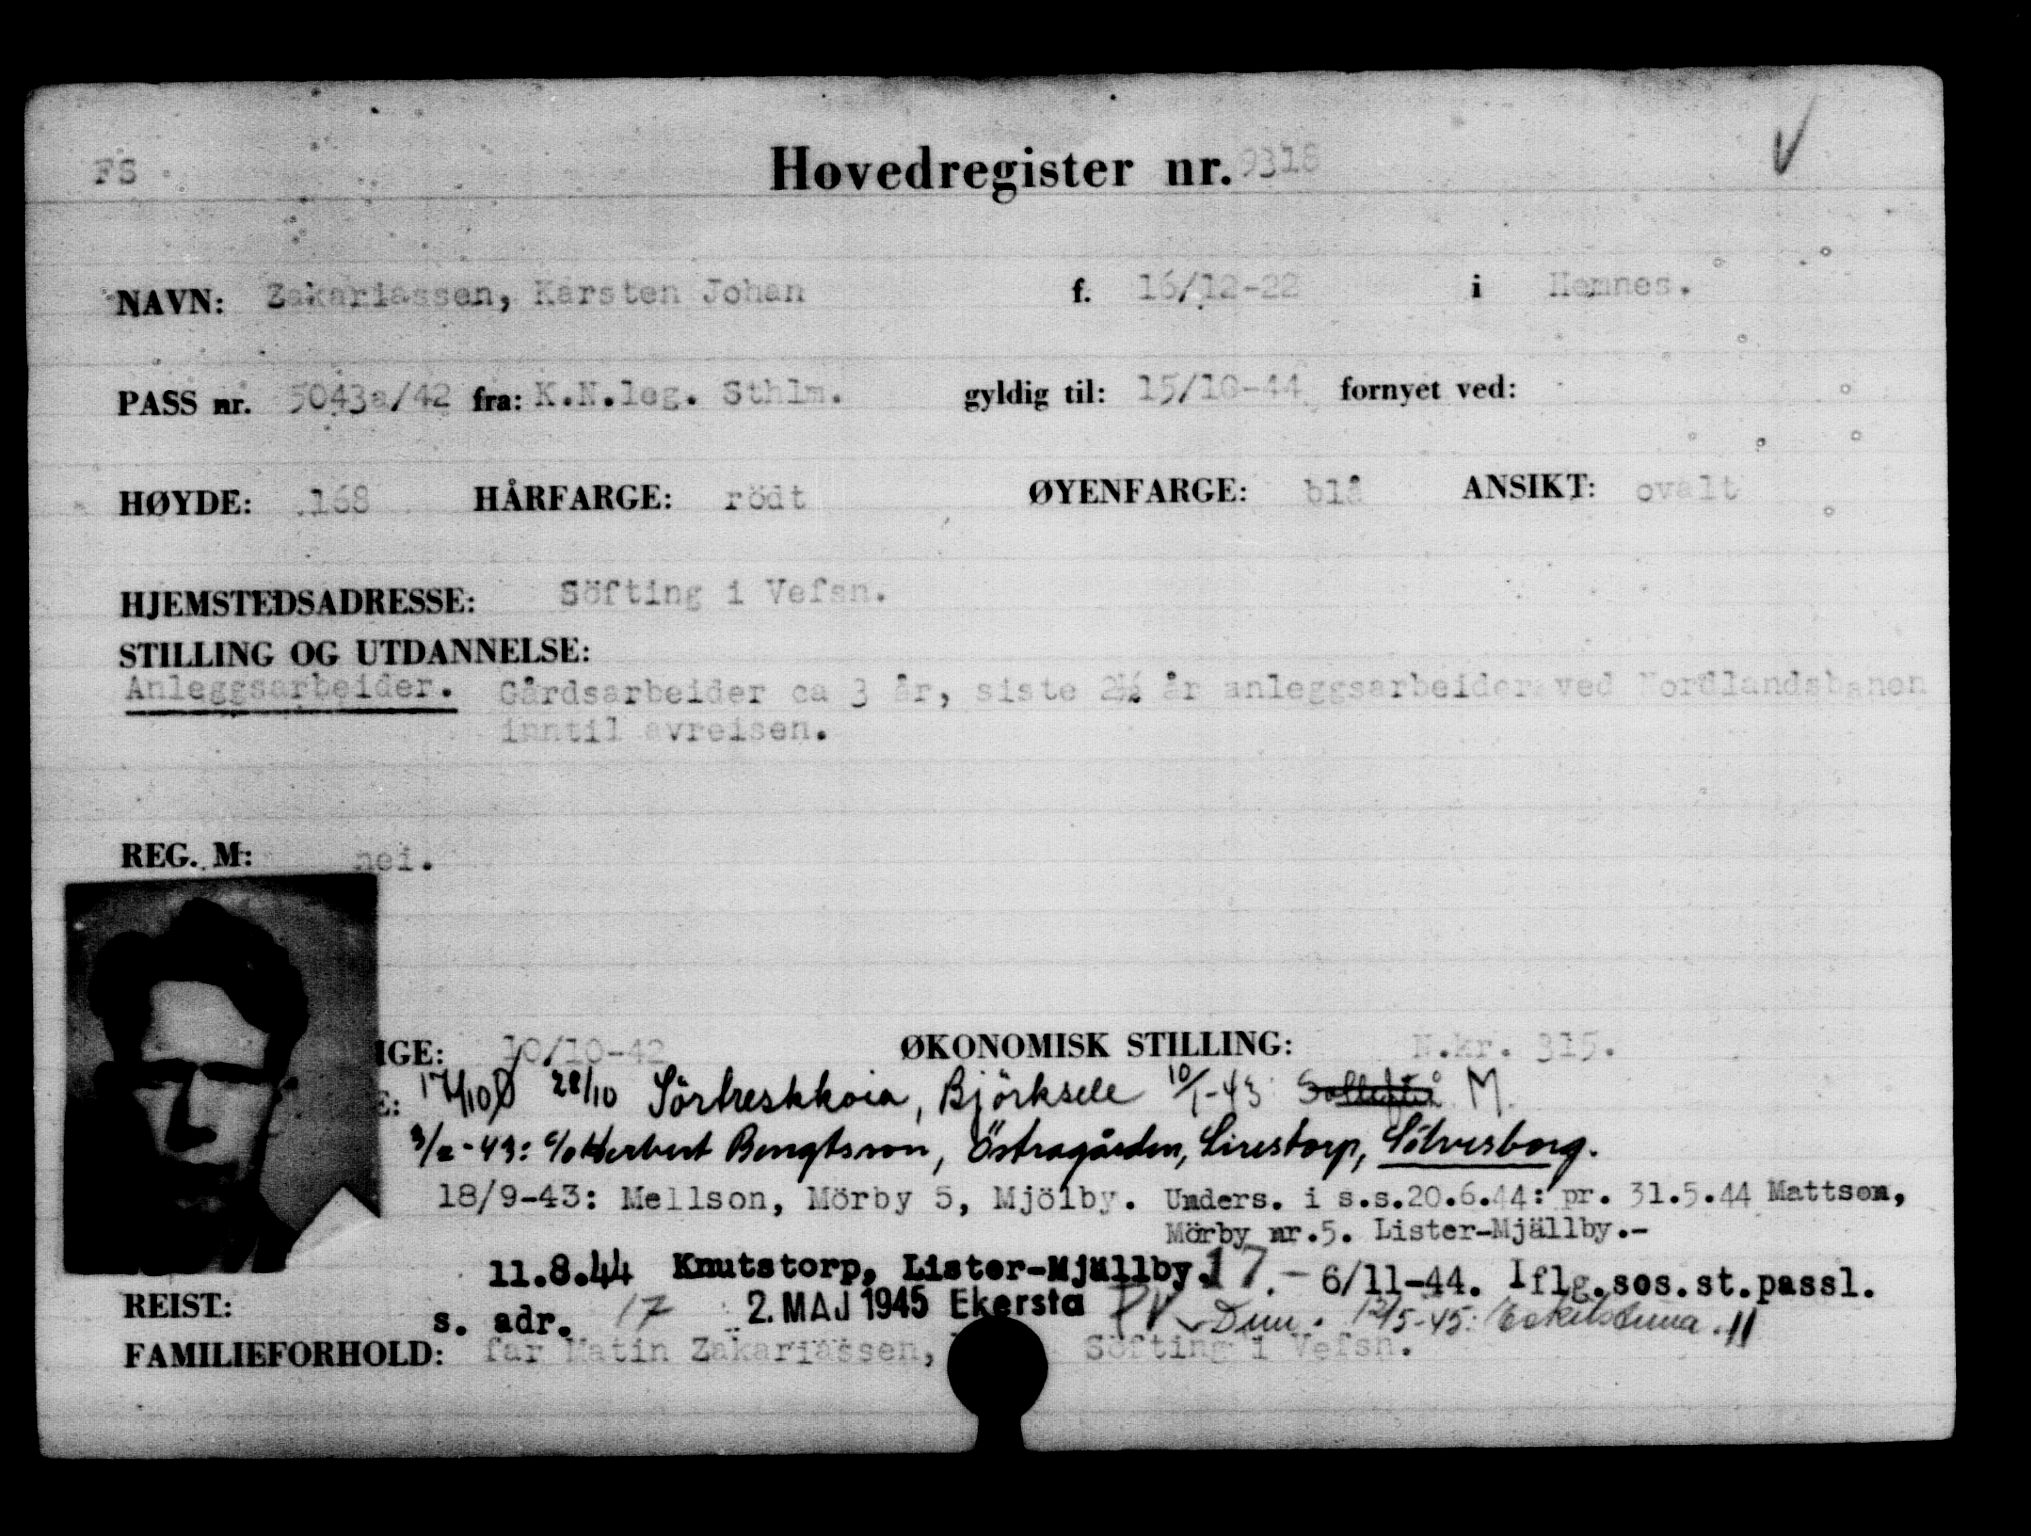 FS Hovedregister nr. 9318
NAVN: Zakariassen, Karsten Johan f. 16/12-22 i Hemnes.
PASS nr. 5043a/42 fra: K.N.leg. Sthlm. gyldig til: 15/10-44 fornyet ved:
HØYDE: 168 HÅRFARGE: rödt ØYENFARGE: blå ANSIKT: ovalt
HJEMSTEDSADRESSE: Söfting i Vefsn.
STILLING OG UTDANNELSE:
Anleggsarbeider. Gårdsarbeider ca 3 år, siste 2½ år anleggsarbeider ved Nordlandsbanen
inntil avreisen.
REG. M: nei.
IGE: 10/10-42 ØKONOMISK STILLING: N.kr. 315.
E: 17/10 28/10 Sörtreskkoia, Björksele 10/1-43 M.
3/2-43: c/o Herbert Bengtsson, Östragården, Lirestorp, Sölvesborg.
18/9-43: Mellson, Mörby 5, Mjölby. Unders. i s.s.20.6.44: pr. 31.5.44 Mattson,
Mörby nr.5. Lister-Mjällby.-
11.8.44 Knutstorp, Lister-Mjällby. 17.- 6/11-44. Iflg.sos.st.passl.
REIST: s. adr. 17 2. MAJ 1945 Ekersta 12/5-45: Eskilstuna.
FAMILIEFORHOLD: far Matin Zakariassen, Söfting i Vefsn.